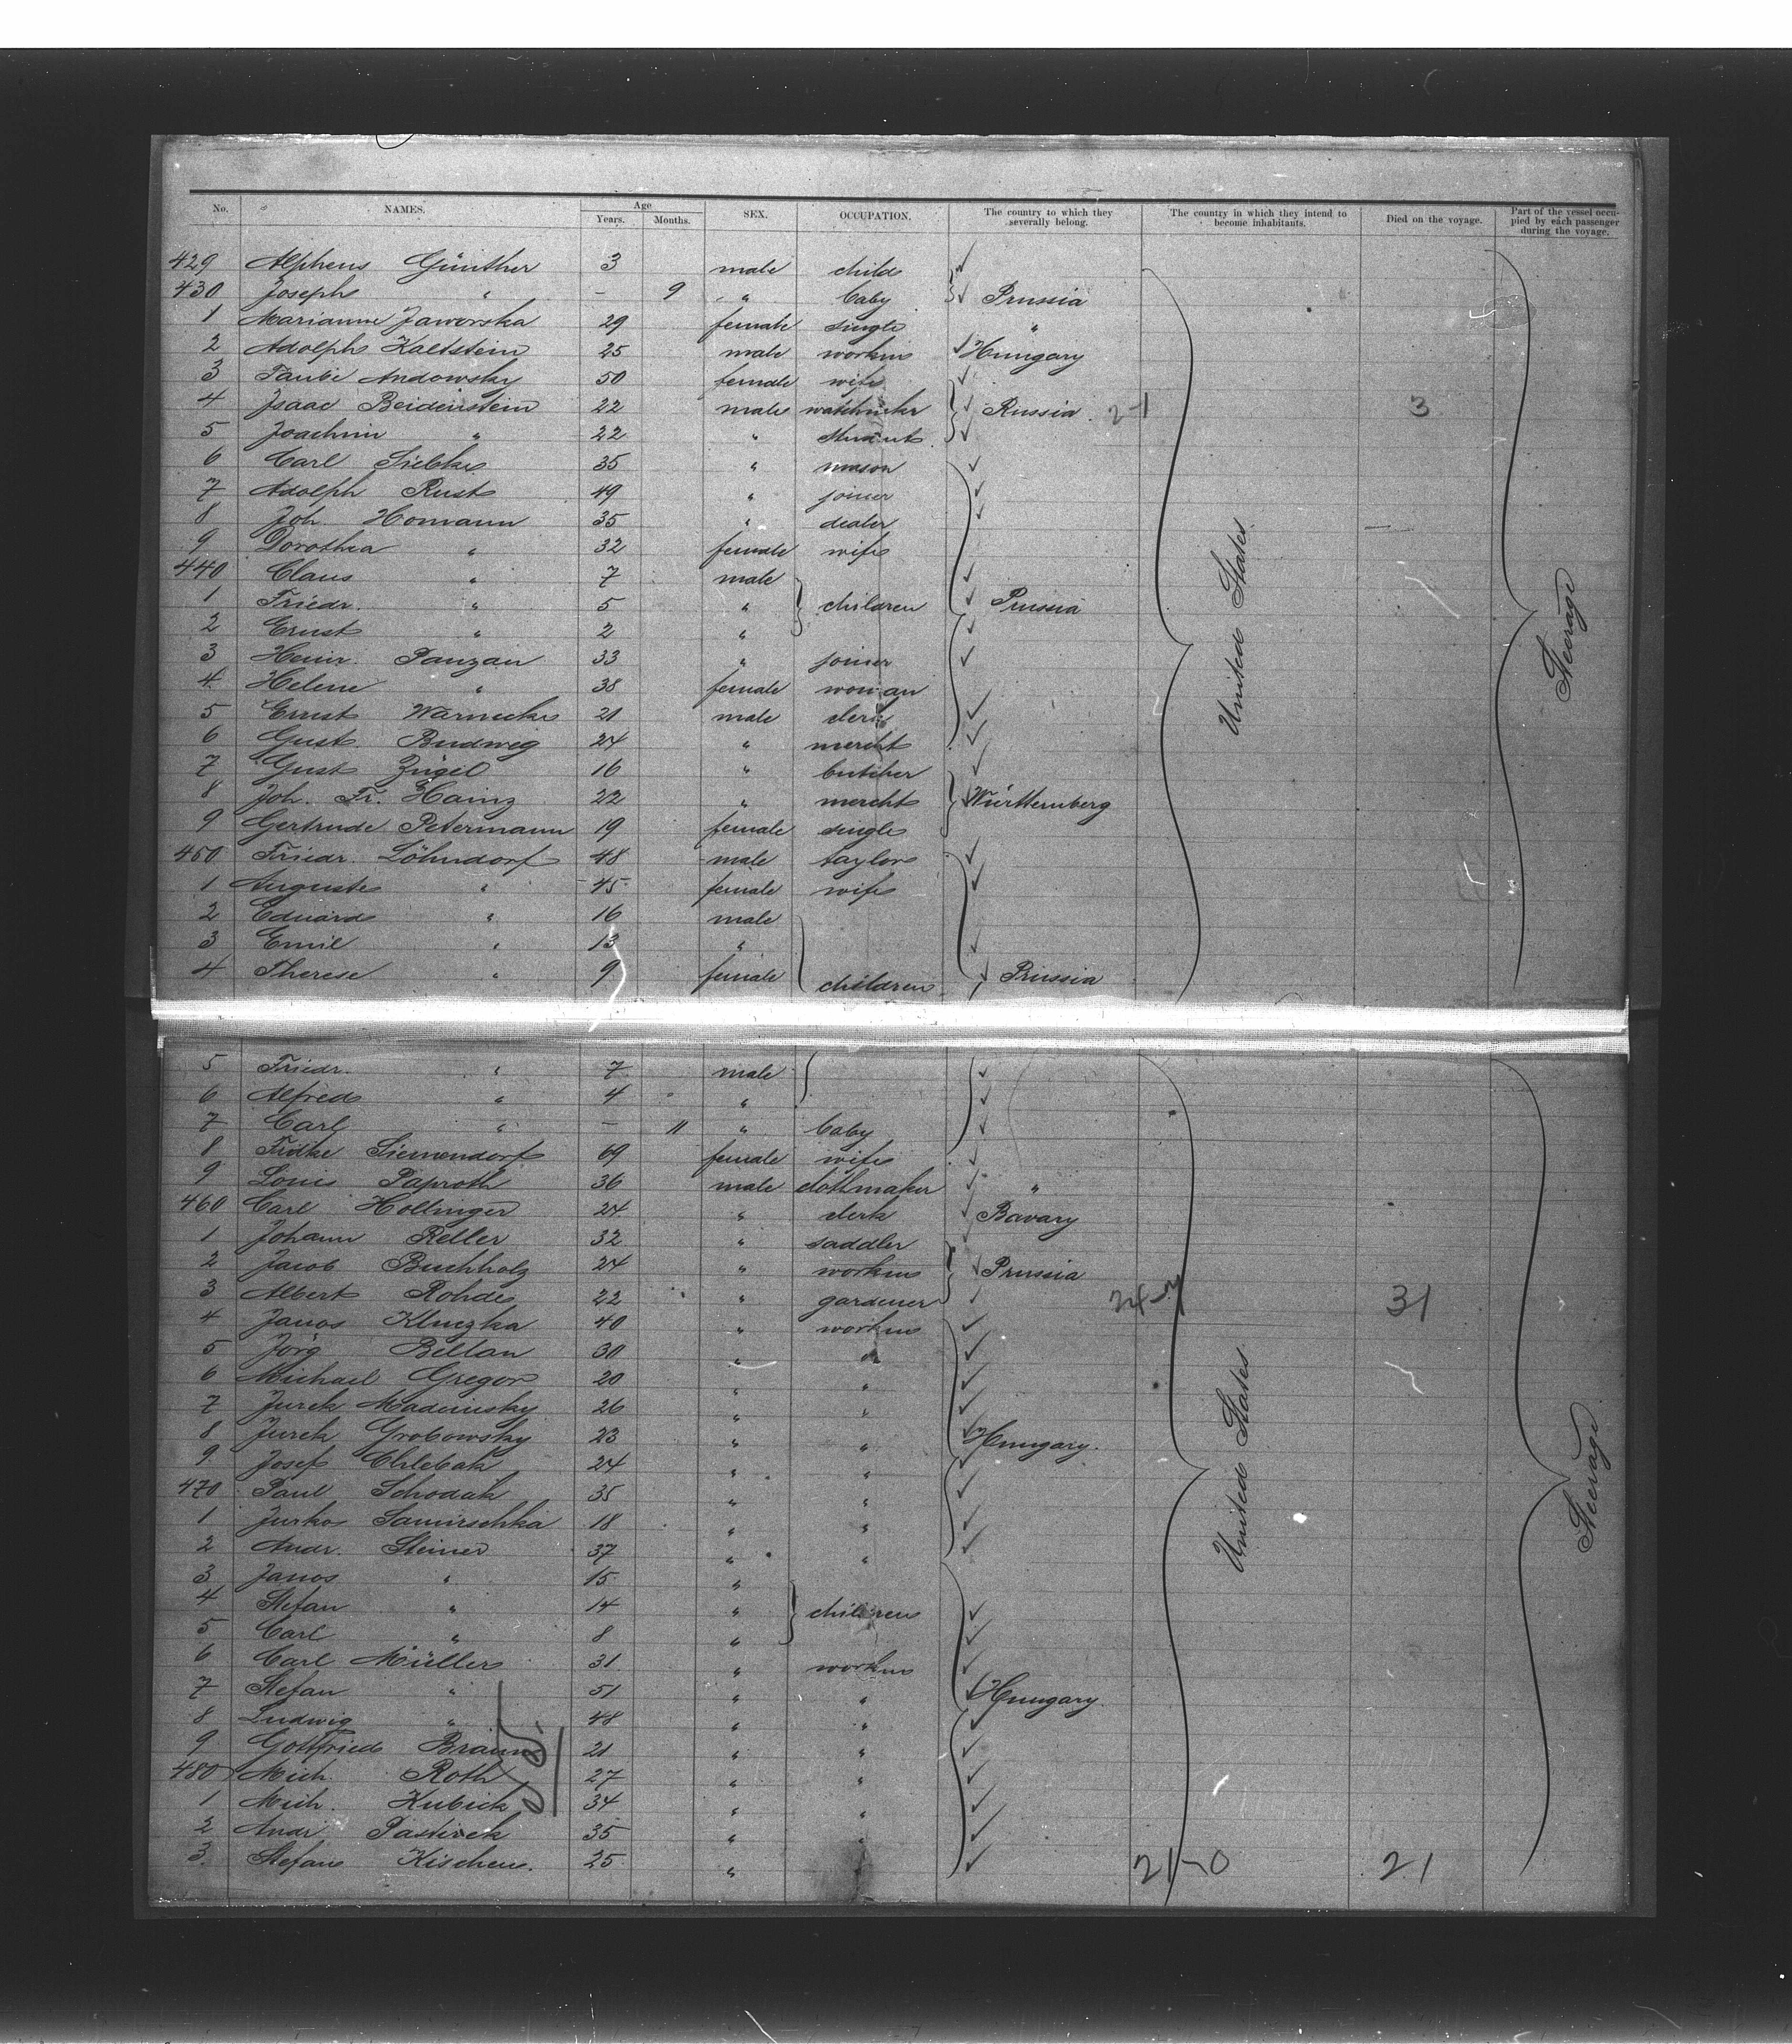 No. NAMES. Age Years. Months. SEX. OCCUPATION. The country to which they severally belong. The country in which they intend to become inhabitants. Died on the voyage. Part of the vessel occupied by each passenger during the voyage.
429 Alphens Günther 3 male child
430 Joseph " - 9 " baby Prussia
1 Marianne Jaworska 29 female single "
2 Adolph Kaltstein 25 male workm Hungary
3 Taube Andowsky 50 female wife
4 Isaac Beidenstein 22 male watchmkr Russia 2-1 3
5 Joachim " 22 " student
6 Carl 35 " mason
7 Adolph Rust 49 " joiner
8 Joh. Homann 35 " dealer
9 Dorothea " 32 female wife
440 Claus " 7 male
1 Friedr. " 5 " children Prussia
2 Ernst " 2 "
3 Heinr. Panzau 33 " joiner
4 Helene " 38 female woman
5 Ernst Warnecke 21 male clerk
6 Gust. Budweg 24 " mercht
7 Gust Zügel 16 " butcher
8 Joh. Fr. Hainz 22 " mercht Württemberg
9 Gertrude Petermann 19 female single
450 Friedr. Löhndorf 48 male taylor
1 Auguste " 45 female wife
2 Eduard " 16 male
3 Emil " 13 "
4 Therese " 9 female children Prussia
United States
Steerage
5 Friedr. " 7 male
6 Alfred " 4 "
7 Carl " - 11 " baby
8 Siemendorf 69 female wife
9 Louis Paproth 36 male clothmaker "
460 Carl Hollinger 24 " clerk Bavary
1 Johann Reller 32 " saddler
2 Jacob Buchholz 24 " workm Prussia
3 Albert Rohde 22 " gardener 24-7 31
4 Janos Kluczka 40 " workm
5 Jörg Billan 30 " "
6 Michael Gregor 20 " "
7 Jurek Madcinsky 26 " "
8 Jurek Grobowsky 23 " " Hungary.
9 Josef Chlebak 24 " "
470 Paul Schodak 35 " "
1 Jurko Samirschka 18 " "
2 Andr. Steiner 37 " "
3 Janos " 15 "
4 Stefan " 14 " children
5 Carl " 8 "
6 Carl Müller 31 " workm
7 Stefan " 51 " " Hungary.
8 Ludwig " 48 " "
9 Gottfried Braun 21 " "
480 Mich. Roth 27 " "
1 Mich. Kubick 34 " "
2 Andr Pastirek 35 "
3. Stefan Kischen. 25 " 21-0 21
United States
Steerage